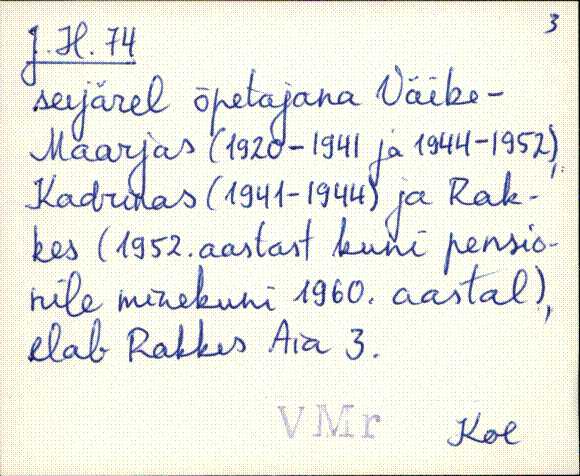 3
J.H.74
seejärel õpetajana Väike-
Maarjas (1920-1941 ja 1944-1952),
Kadrinas (1941-1944) ja Rak-
kes (1952. aastast kuni pensio-
nile minekuni 1960. aastal),
elab Rakkes Aia 3.
VMr
Koe